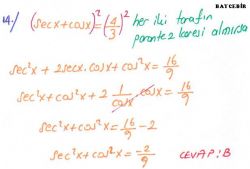 BAYCEBİR
14-/ (secx+cosx)² = (4/3)² her iki tarafın
parantez karesi alınırsa
sec²x + 2secx.cosx + cos²x = 16/9
sec²x + cos²x + 2 1/cosx . cosx = 16/9
sec²x + cos²x = 16/9 - 2
sec²x + cos²x = -2/9 CEVAP: B